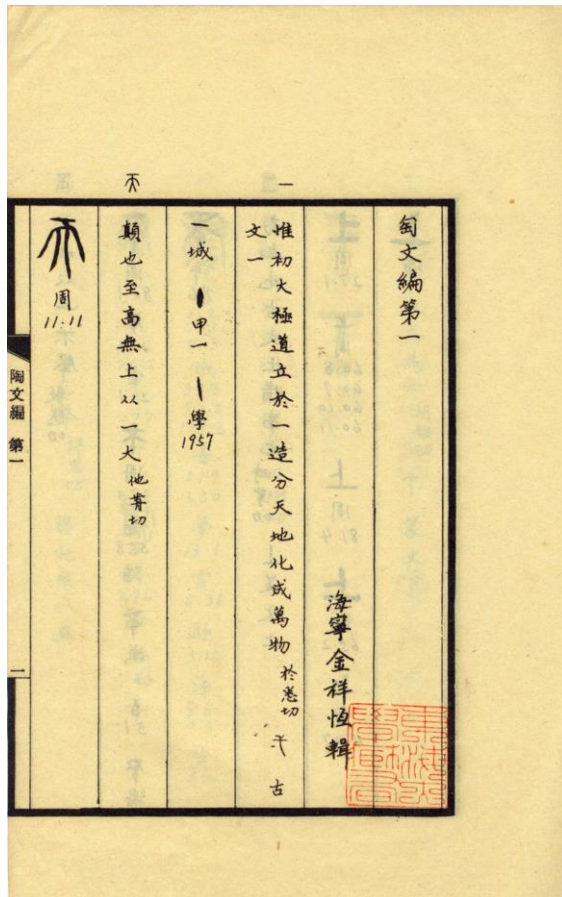 匋文編第一
海寧金祥恆輯
一
惟初大極道立於一造分天地化成萬物 於悉切 弌 古
文一
一 城 一 甲一 一 學 1957
天
顛也至高無上从一大 他前切
天 周 11.11
陶文編 第一
一